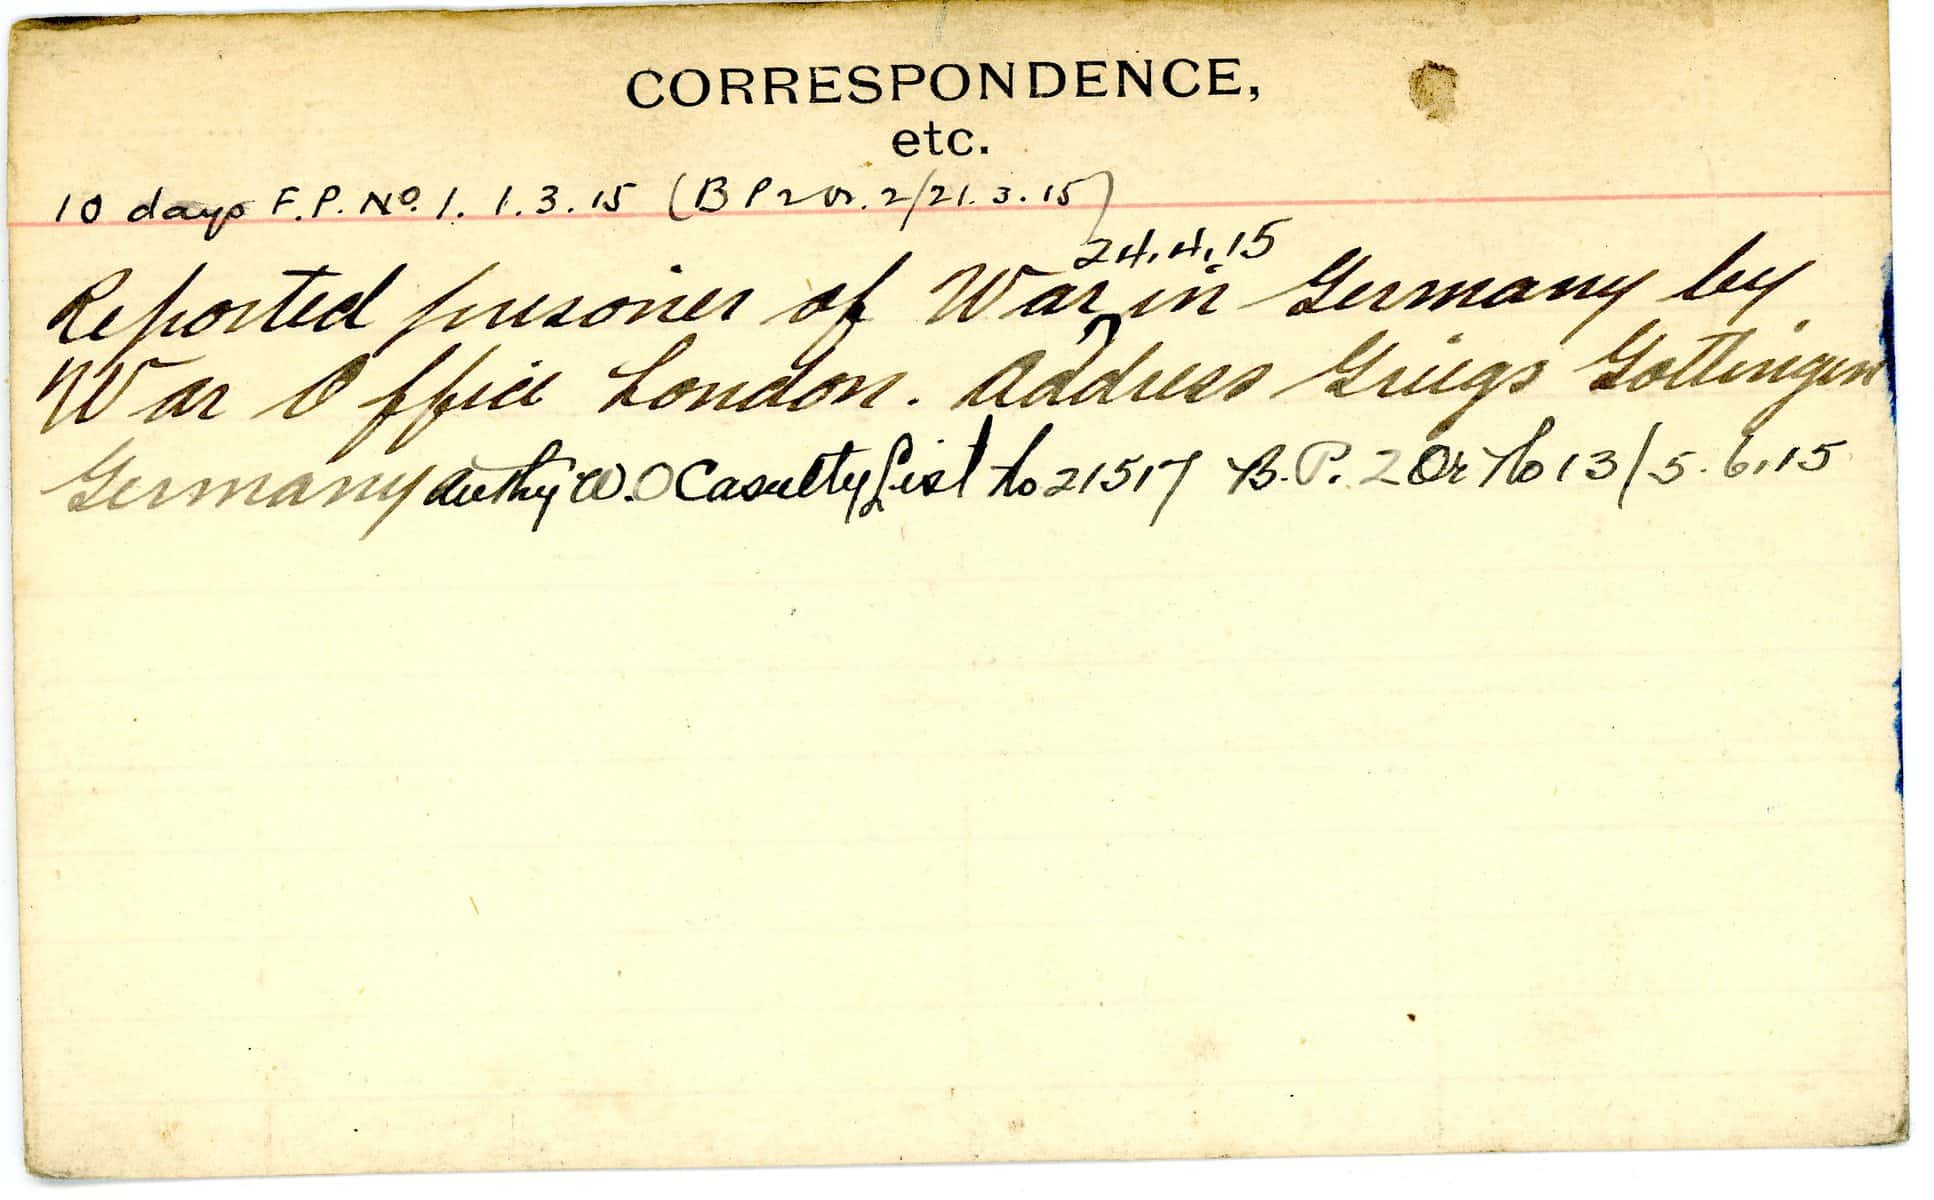 CORRESPONDENCE,
etc.
10 days F.P. No. 1. 1.3.15 (B P 2 Or. 2/21.3.15)
24.4.15
Reported prisoner of War in Germany by
War Office London. Address Griegs Gottingen
Germany Authy W.O Casulty List No 21517 B.P. 2 Or No 13/5.6.15